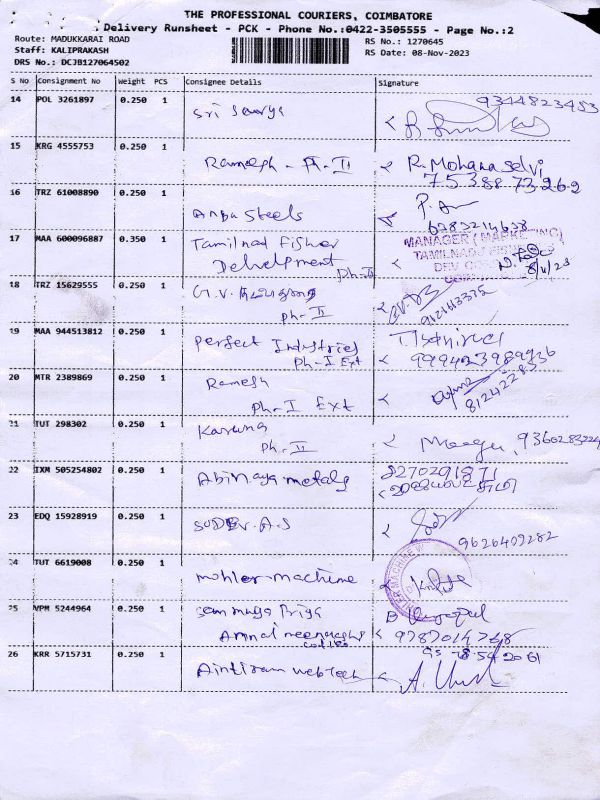 THE PROFESSIONAL COURIERS, COIMBATORE
Delivery Runsheet - PCK - Phone No.:0422-3505555 - Page No.:2
Route: MADUKKARAI ROAD
RS No.: 1270645
Staff: KALIPRAKASH
RS Date: 08-Nov-2023
DRS No.: DCJB127064502
S No Consignment No Weight PCS Consignee Details Signature
14 POL 3261897 0.250 1 Sri Sourya 9344823453
15 KRG 4555753 0.250 1 Ramesh - Ph-II R. Mohana Selvi
7538873262
16 TRZ 61008890 0.250 1 Anbu Steels
6383214638
17 MAA 600096887 0.350 1 Tamilnad Fisher
Delvelpment Ph-II
MANAGER (MARKETING)
TAMILNADU
8/11/23
18 TRZ 15629555 0.250 1 G.V.
Ph-II
19 MAA 944513812 0.250 1 Perfect Industries
Ph-I Ext
20 MTR 2389869 0.250 1 Ramesh
Ph-I Ext 8124228336
21 TUT 298302 0.250 1 Karuna
Ph-II
22 IXM 505254802 0.250 1 Abinaya metals 8270291871
23 EDQ 15928919 0.250 1
9626409282
24 TUT 6619008 0.250 1 mohler machine
25 VPM 5244964 0.250 1 Sanmuga Priya
Annai meenakshi 9787014768
26 KRR 5715731 0.250 1 webtech